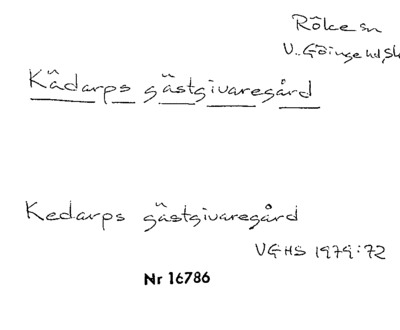 Röke sn
V. Göinge hd, Sk
Kädarps gästgivaregård
Kedarps gästgivaregård
VGHS 1979:72
Nr 16786